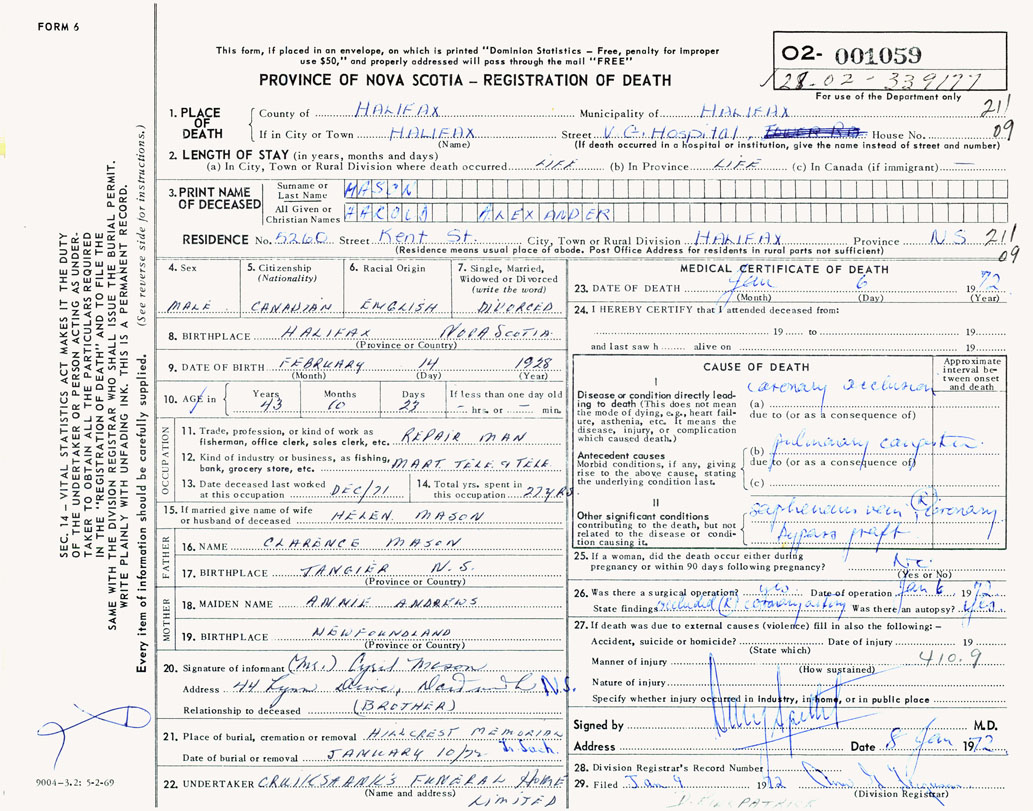 FORM 6
This form, if placed in an envelope, on which is printed "Dominion Statistics – Free, penalty for improper
use $50," and properly addressed will pass through the mail "FREE"
PROVINCE OF NOVA SCOTIA – REGISTRATION OF DEATH
O2- 001059
02-339177
For use of the Department only
SEC. 14 – VITAL STATISTICS ACT MAKES IT THE DUTY
OF THE UNDERTAKER OR PERSON ACTING AS UNDER-
TAKER TO OBTAIN ALL THE PARTICULARS REQUIRED
IN THE "REGISTRATION OF DEATH" AND TO FILE THE
SAME WITH THE DIVISION REGISTRAR WHO SHALL ISSUE THE BURIAL PERMIT.
WRITE PLAINLY WITH UNFADING INK. THIS IS A PERMANENT RECORD.
Every item of information should be carefully supplied. (See reverse side for instructions.)
1. PLACE OF DEATH
County of HALIFAX Municipality of HALIFAX 211
If in City or Town HALIFAX Street V. G. Hospital, House No. 09
(Name) (If death occurred in a hospital or institution, give the name instead of street and number)
2. LENGTH OF STAY (in years, months and days)
(a) In City, Town or Rural Division where death occurred LIFE (b) In Province LIFE (c) In Canada (if immigrant) —
3. PRINT NAME OF DECEASED
Surname or Last Name MASON
All Given or Christian Names HAROLD ALEXANDER
RESIDENCE No. 5260 Street Kent St. City, Town or Rural Division HALIFAX Province N.S. 211
(Residence means usual place of abode. Post Office Address for residents in rural parts not sufficient) 09
4. Sex MALE
5. Citizenship (Nationality) CANADIAN
6. Racial Origin ENGLISH
7. Single, Married, Widowed or Divorced (write the word) DIVORCED
8. BIRTHPLACE HALIFAX NOVA SCOTIA
(Province or Country)
9. DATE OF BIRTH FEBRUARY 14 1928
(Month) (Day) (Year)
10. AGE in Years 43 Months 10 Days 23 If less than one day old – hrs. or – min.
OCCUPATION
11. Trade, profession or kind of work as fisherman, office clerk, sales clerk, etc. REPAIR MAN
12. Kind of industry or business, as fishing, bank, grocery store, etc. MART TELE & TELE
13. Date deceased last worked at this occupation DEC/71
14. Total yrs. spent in this occupation 27 YRS.
15. If married give name of wife or husband of deceased HELEN MASON
FATHER
16. NAME CLARENCE MASON
17. BIRTHPLACE TANGIER N.S.
(Province or Country)
MOTHER
18. MAIDEN NAME ANNIE ANDREWS
19. BIRTHPLACE NEWFOUNDLAND
(Province or Country)
20. Signature of informant (Mr.) Cyril Mason
Address 44 Lynn Drive, Dartmouth N.S.
Relationship to deceased (BROTHER)
21. Place of burial, cremation or removal HILLCREST MEMORIAL
Date of burial or removal JANUARY 10/72
22. UNDERTAKER CRUIKSHANK'S FUNERAL HOME
(Name and address) LIMITED
9004-3.2; 5-2-69
MEDICAL CERTIFICATE OF DEATH
23. DATE OF DEATH Jan 6 1972
(Month) (Day) (Year)
24. I HEREBY CERTIFY that I attended deceased from:
19 to 19
and last saw h alive on 19
CAUSE OF DEATH
Approximate interval between onset and death
I
Disease or condition directly leading to death (This does not mean the mode of dying, e.g., heart failure, asthenia, etc. It means the disease, injury, or complication which caused death.)
(a) coronary occlusion
due to (or as a consequence of)
Antecedent causes
Morbid conditions, if any, giving rise to the above cause, stating the underlying condition last.
(b) pulmonary
due to (or as a consequence of)
(c)
II
Other significant conditions contributing to the death, but not related to the disease or condition causing it.
saphenous vein (R) coronary
bypass graft
25. If a woman, did the death occur either during pregnancy or within 90 days following pregnancy?
(Yes or No)
26. Was there a surgical operation? yes Date of operation Jan 6 1972
State findings occluded (R) coronary artery Was there an autopsy? yes
27. If death was due to external causes (violence) fill in also the following: –
Accident, suicide or homicide? Date of injury 19
(State which)
Manner of injury 410.9
(How sustained)
Nature of injury
Specify whether injury occurred in industry, in home, or in public place
Signed by M.D.
Address Date 8 Jan 1972
28. Division Registrar's Record Number
29. Filed Jan 9 1972
(Division Registrar)